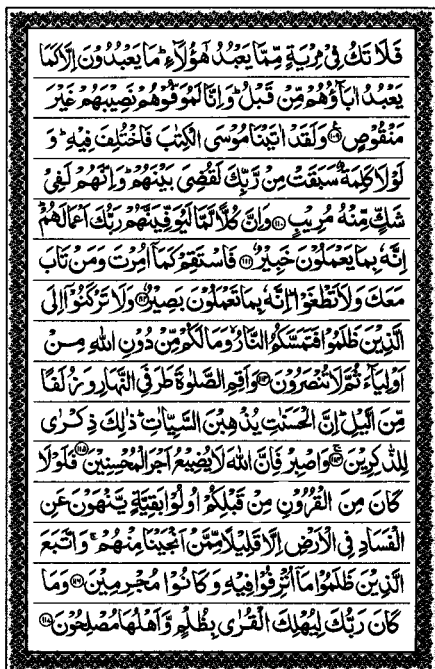 فَلَا تَكُ فِيْ مِرْيَةٍ مِّمَّا يَعْبُدُ هٰٓؤُلَآءِ ؕ مَا يَعْبُدُوْنَ اِلَّا كَمَا
يَعْبُدُ اٰبَآؤُهُمْ مِّنْ قَبْلُ ؕ وَاِنَّا لَمُوَفُّوْهُمْ نَصِيْبَهُمْ غَيْرَ
مَنْقُوْصٍ ﴿۱۰۹﴾ وَلَقَدْ اٰتَيْنَا مُوْسَى الْكِتٰبَ فَاخْتُلِفَ فِيْهِ ؕ وَ
لَوْلَا كَلِمَةٌ سَبَقَتْ مِنْ رَّبِّكَ لَقُضِيَ بَيْنَهُمْ ؕ وَاِنَّهُمْ لَفِيْ
شَكٍّ مِّنْهُ مُرِيْبٍ ﴿۱۱۰﴾ وَاِنَّ كُلًّا لَّمَّا لَيُوَفِّيَنَّهُمْ رَبُّكَ اَعْمَالَهُمْ ؕ
اِنَّهٗ بِمَا يَعْمَلُوْنَ خَبِيْرٌ ﴿۱۱۱﴾ فَاسْتَقِمْ كَمَآ اُمِرْتَ وَمَنْ تَابَ
مَعَكَ وَلَا تَطْغَوْا ؕ اِنَّهٗ بِمَا تَعْمَلُوْنَ بَصِيْرٌ ﴿۱۱۲﴾ وَلَا تَرْكَنُوْٓا اِلَى
الَّذِيْنَ ظَلَمُوْا فَتَمَسَّكُمُ النَّارُ ۙ وَمَا لَكُمْ مِّنْ دُوْنِ اللّٰهِ مِنْ
اَوْلِيَآءَ ثُمَّ لَا تُنْصَرُوْنَ ﴿۱۱۳﴾ وَاَقِمِ الصَّلٰوةَ طَرَفَيِ النَّهَارِ وَزُلَفًا
مِّنَ الَّيْلِ ؕ اِنَّ الْحَسَنٰتِ يُذْهِبْنَ السَّيِّاٰتِ ؕ ذٰلِكَ ذِكْرٰى
لِلذّٰكِرِيْنَ ﴿۱۱۴﴾ وَاصْبِرْ فَاِنَّ اللّٰهَ لَا يُضِيْعُ اَجْرَ الْمُحْسِنِيْنَ ﴿۱۱۵﴾ فَلَوْلَا
كَانَ مِنَ الْقُرُوْنِ مِنْ قَبْلِكُمْ اُولُوْا بَقِيَّةٍ يَّنْهَوْنَ عَنِ
الْفَسَادِ فِى الْاَرْضِ اِلَّا قَلِيْلًا مِّمَّنْ اَنْجَيْنَا مِنْهُمْ ۚ وَاتَّبَعَ
الَّذِيْنَ ظَلَمُوْا مَآ اُتْرِفُوْا فِيْهِ وَكَانُوْا مُجْرِمِيْنَ ﴿۱۱۶﴾ وَمَا
كَانَ رَبُّكَ لِيُهْلِكَ الْقُرٰى بِظُلْمٍ وَّاَهْلُهَا مُصْلِحُوْنَ ﴿۱۱۷﴾